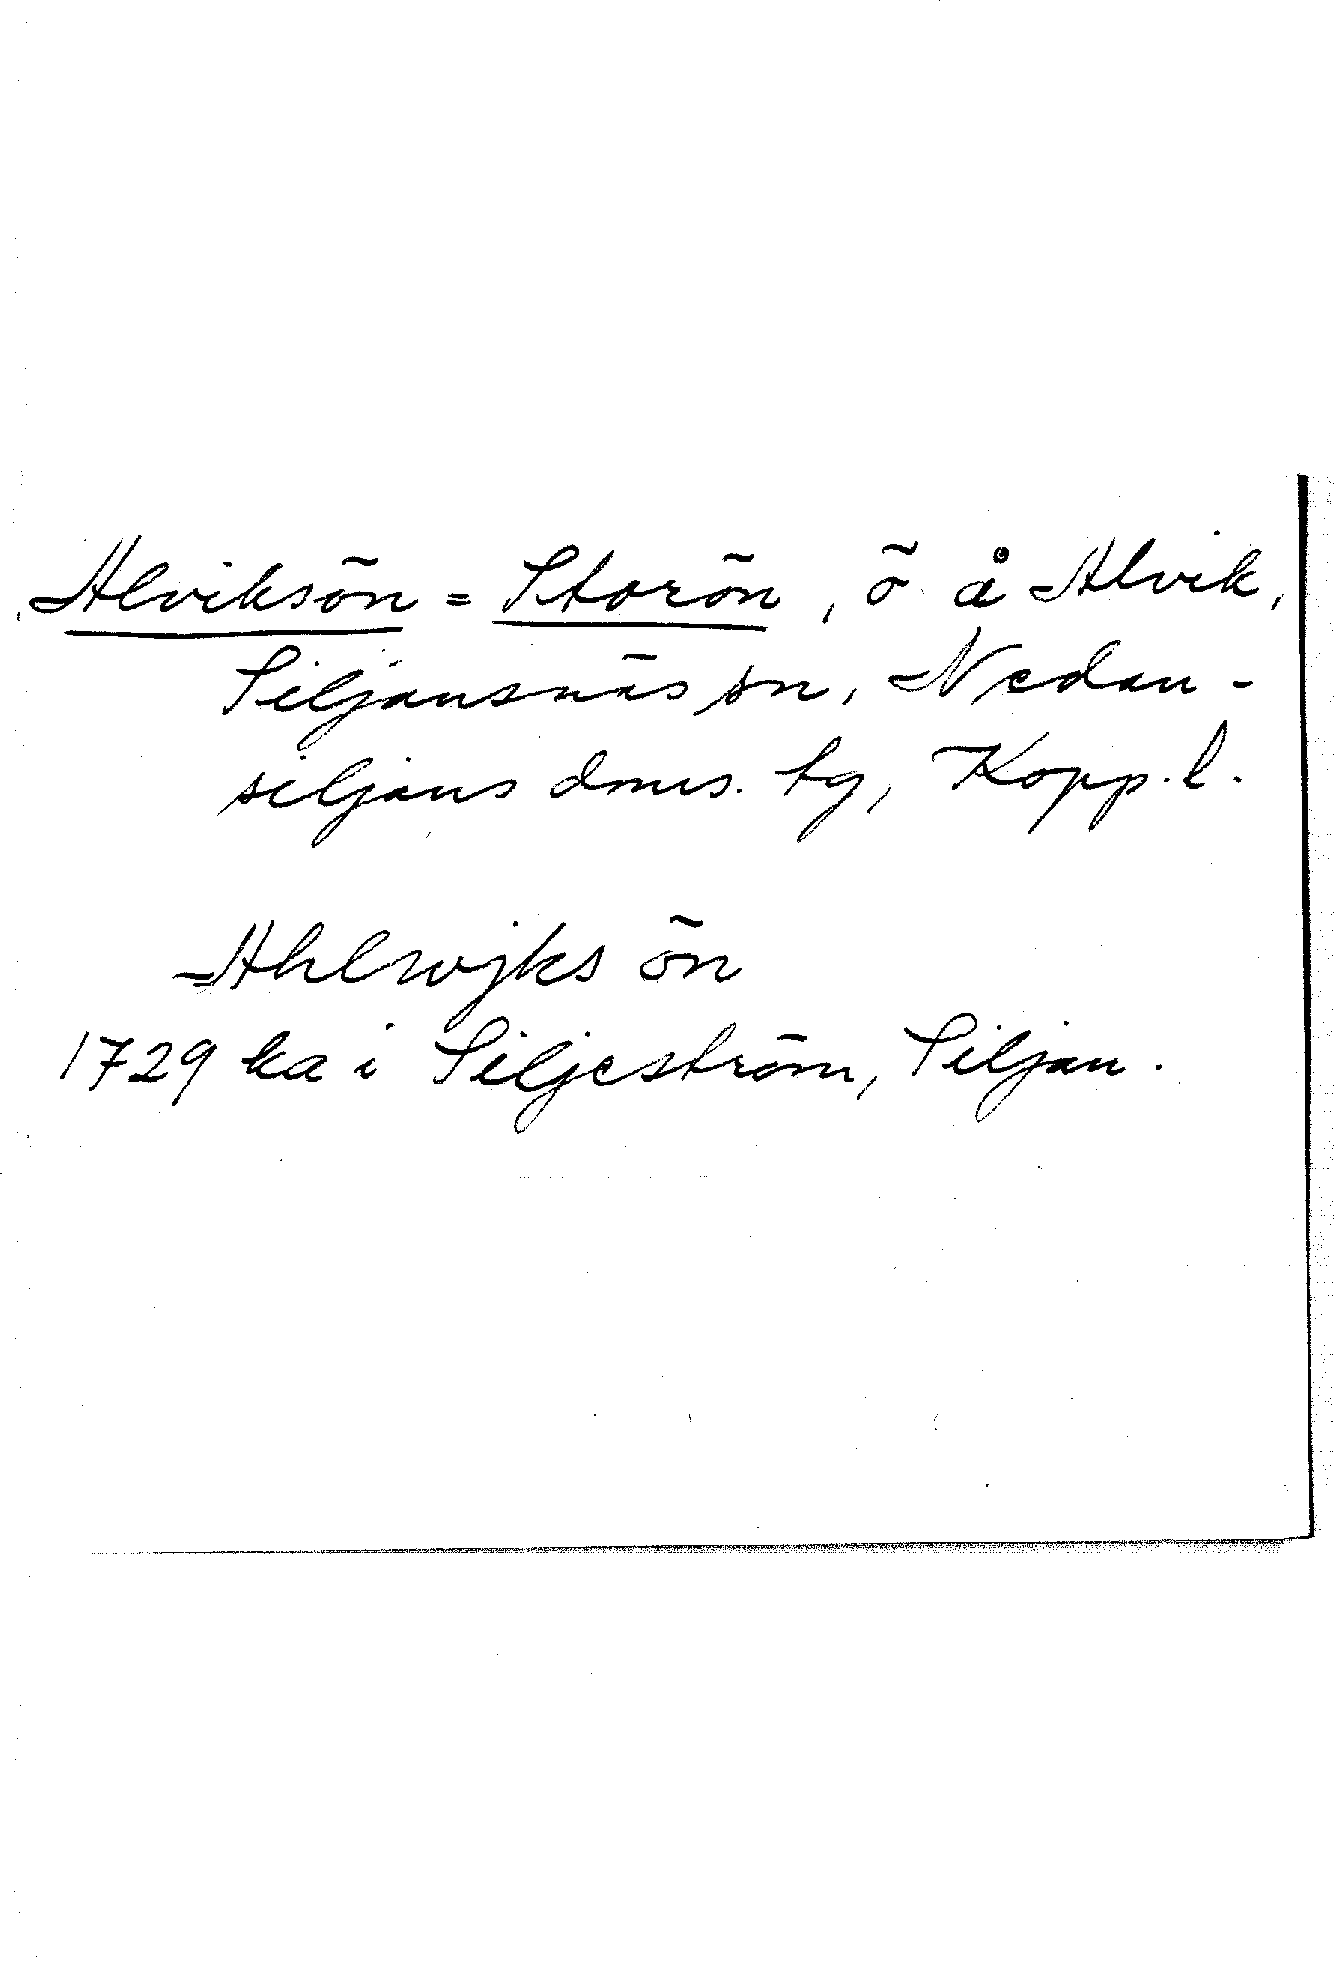 Alviksön = Storön, ö å Alvik,
Siljansnäs sn, Nedan-
siljans doms. tg, Kopp. l.
Ahlwjks ön
1729 ka i Siljeström, Siljan.